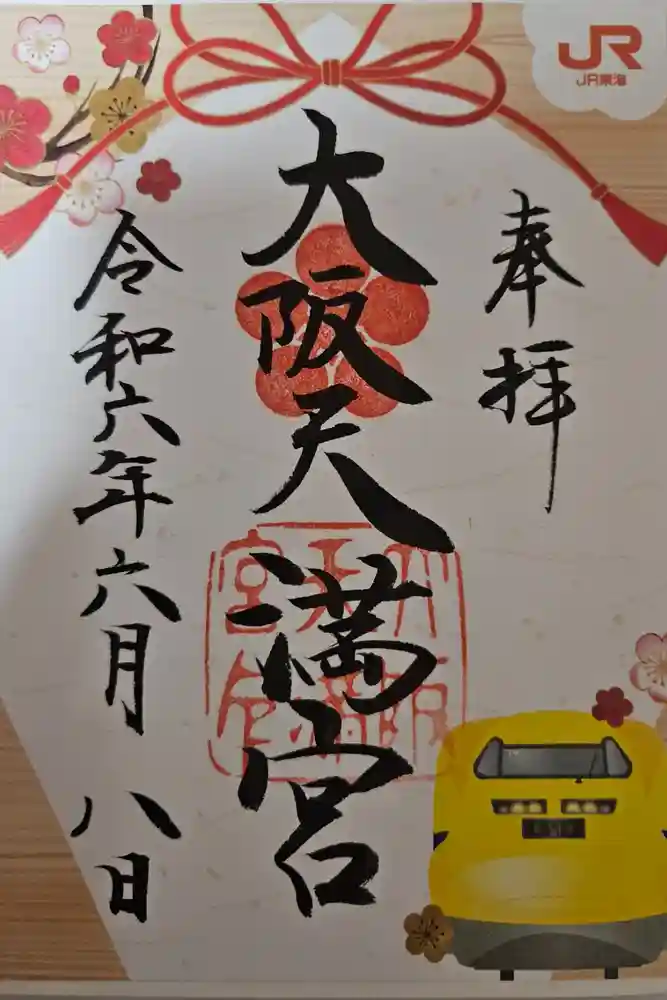 JR
JR東海
奉拝
大阪天満宮
令和六年六月八日